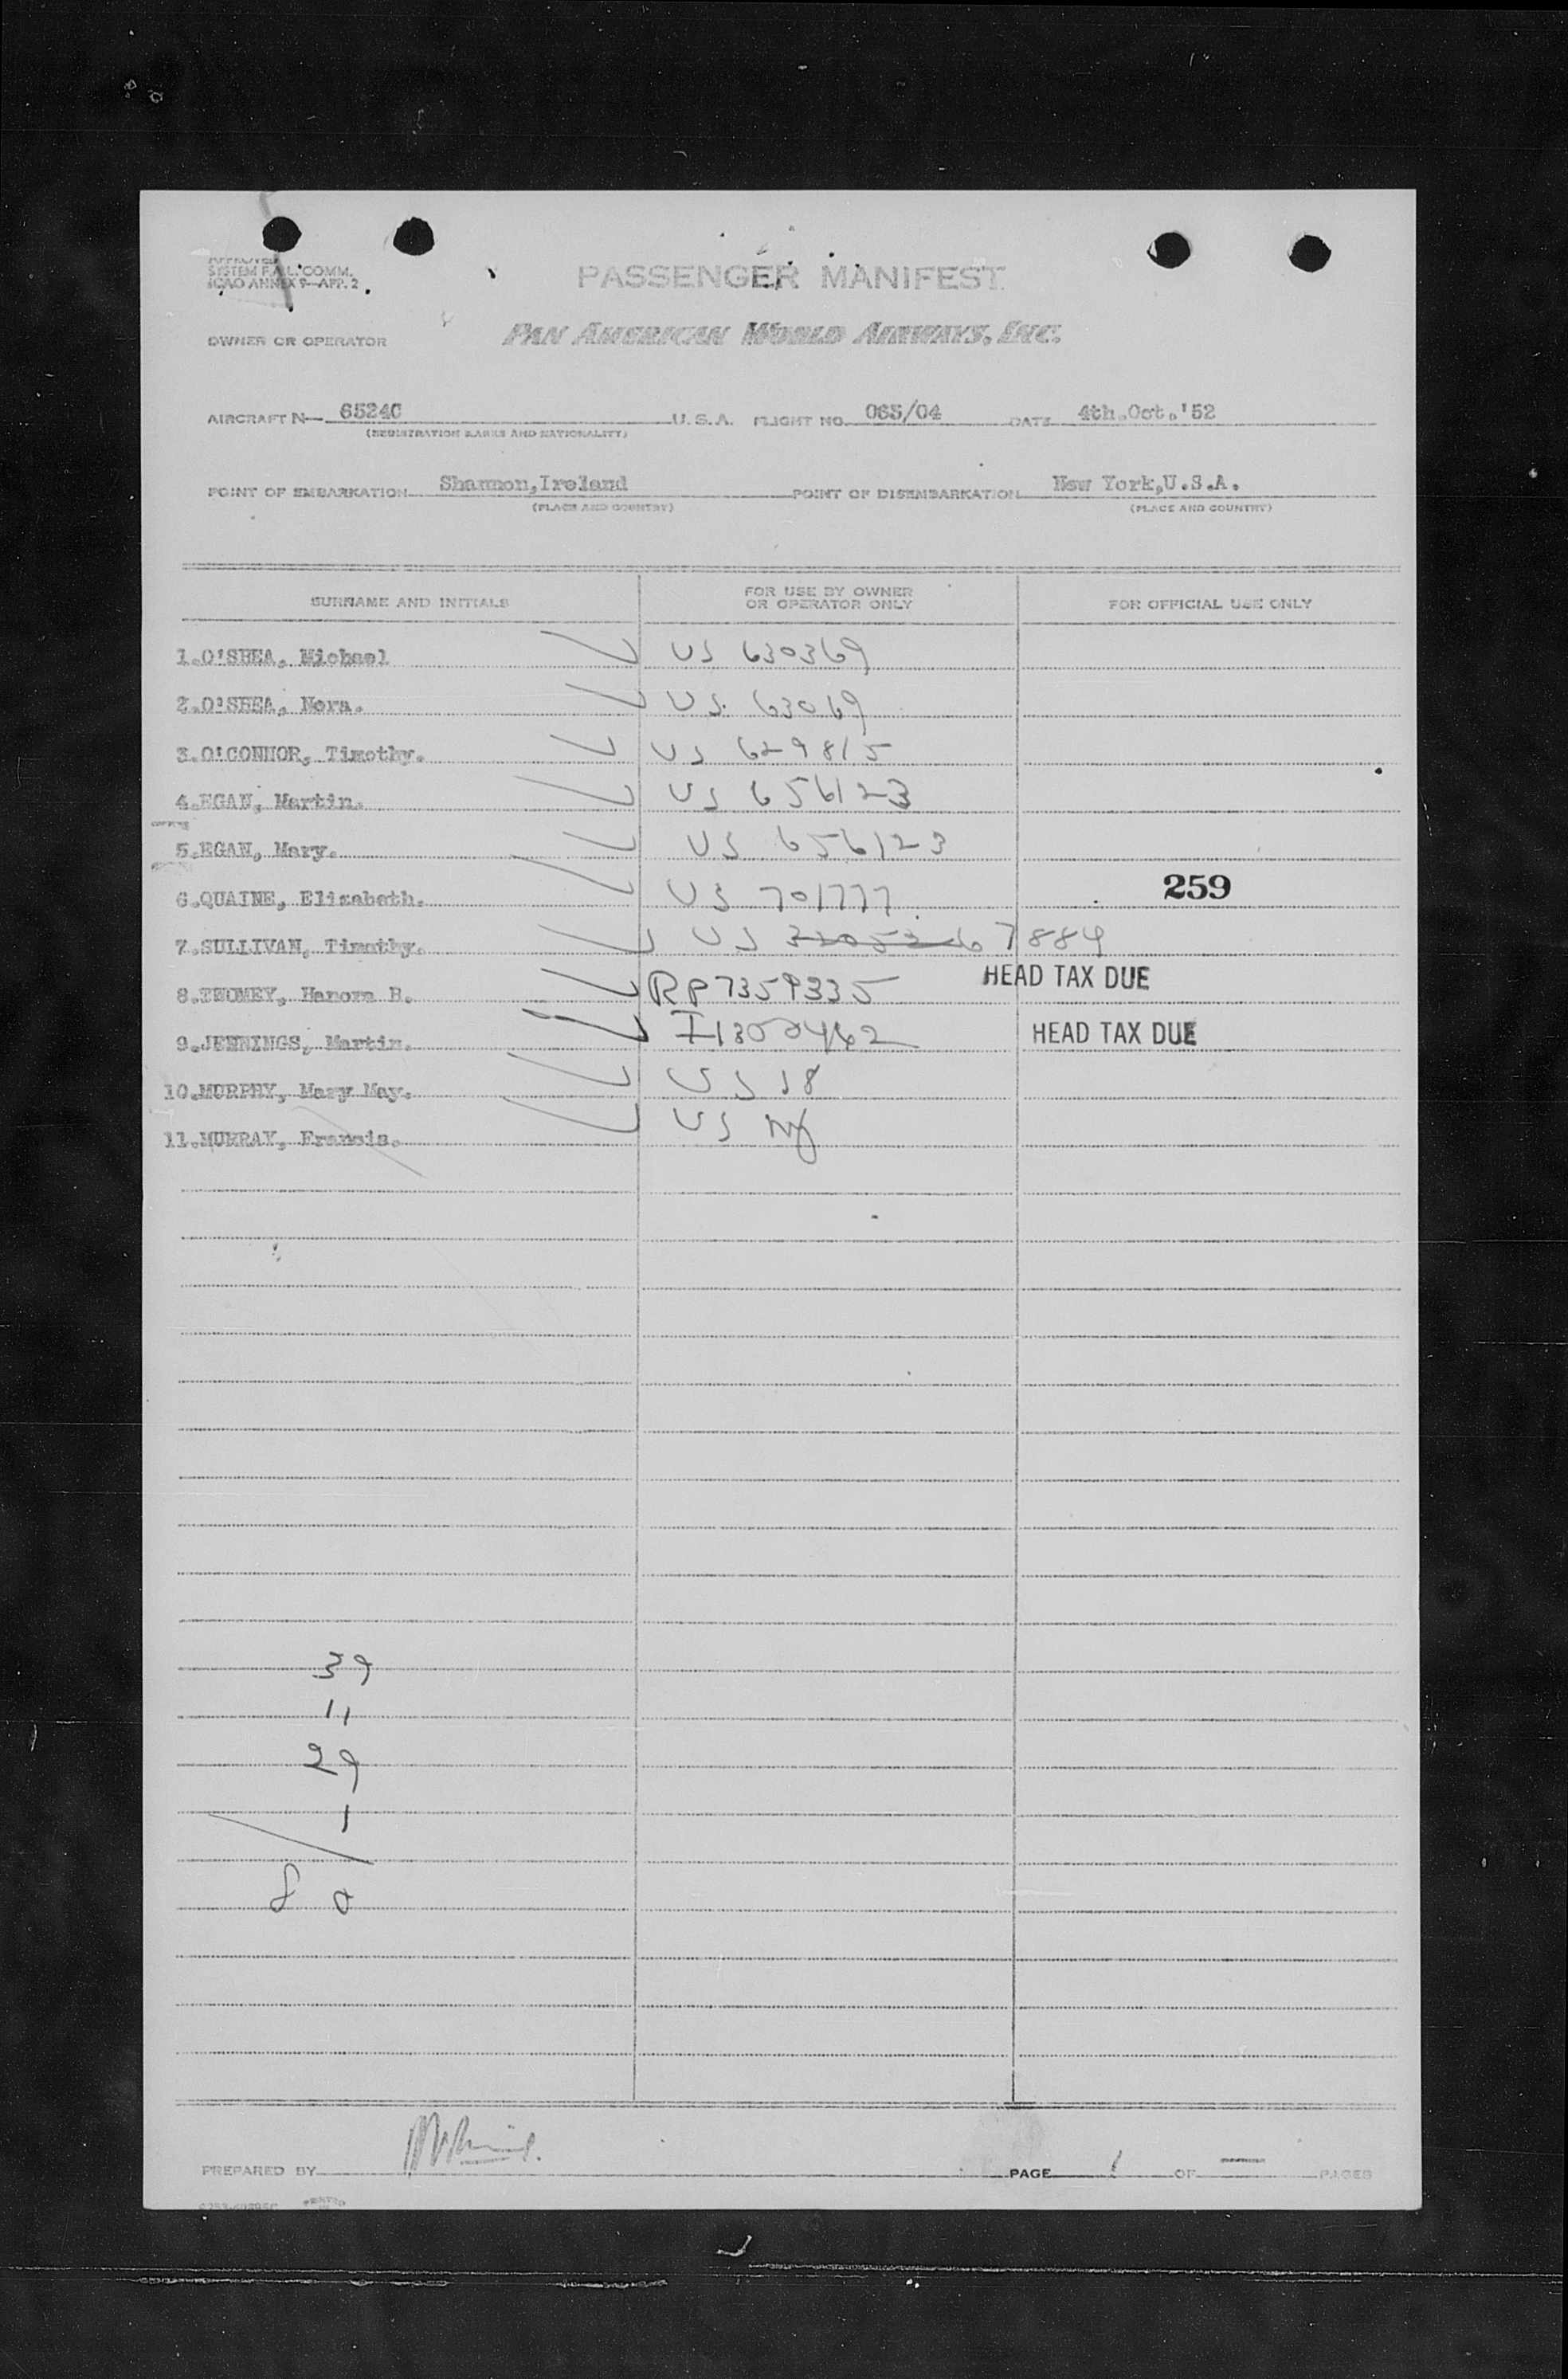 APPROVED
SYSTEM F.A.L. COMM.
ICAO ANNEX 9—APP. 2
PASSENGER MANIFEST
OWNER OR OPERATOR PAN AMERICAN WORLD AIRWAYS, INC.
AIRCRAFT N— 6524C U. S. A. FLIGHT NO. 065/04 DATE 4th.Oct.'52
(REGISTRATION MARKS AND NATIONALITY)
POINT OF EMBARKATION Shannon,Ireland POINT OF DISEMBARKATION New York,U.S.A.
(PLACE AND COUNTRY) (PLACE AND COUNTRY)
SURNAME AND INITIALS FOR USE BY OWNER OR OPERATOR ONLY FOR OFFICIAL USE ONLY
1.O'SHEA, Michael US 630369
2.O'SHEA, Nora. US 63069
3.O'CONNOR, Timothy. US 629815
4.EGAN, Martin. US 656123
5.EGAN, Mary. US 656123
6.QUAINE, Elizabeth. US 701777. 259
7.SULLIVAN, Timothy. US 67884
8.TWOMEY, Hanora B. RP7359335 HEAD TAX DUE
9.JENNINGS, Martin. I1300462 HEAD TAX DUE
10.MURPHY, Mary May. US 18
11.MURRAY, Francis. US
39
11
29
1
80
PREPARED BY PAGE 1 OF — PAGES